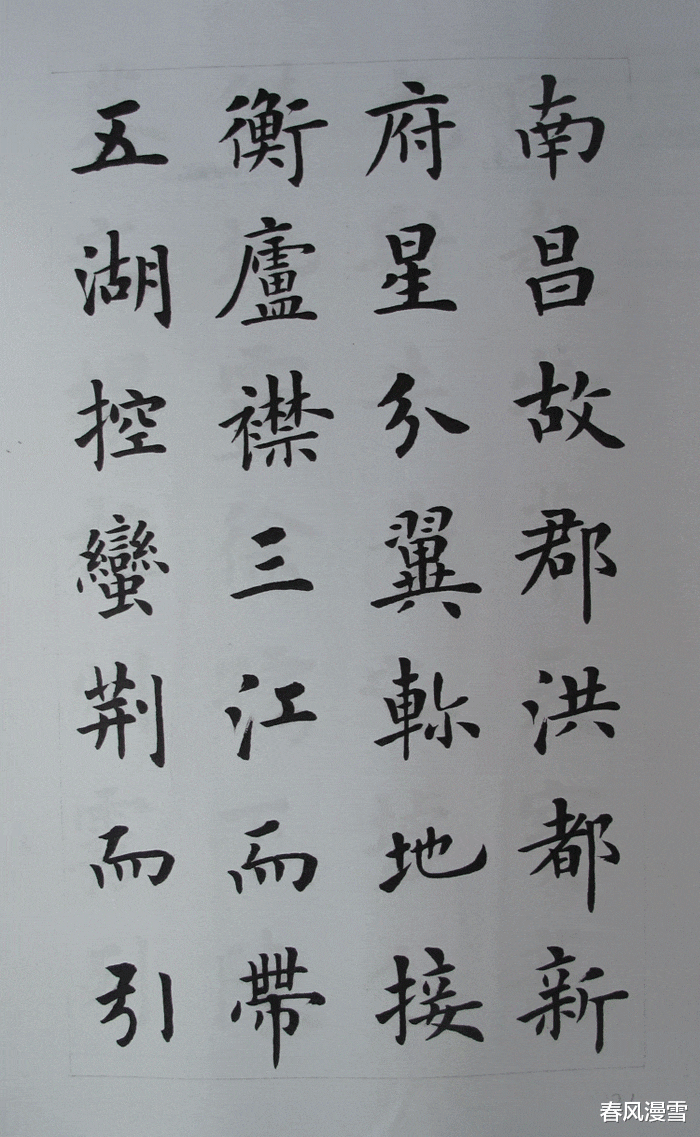 南昌故郡洪都新
府星分翼軫地接
衡廬襟三江而帶
五湖控蠻荆而引
春风漫雪